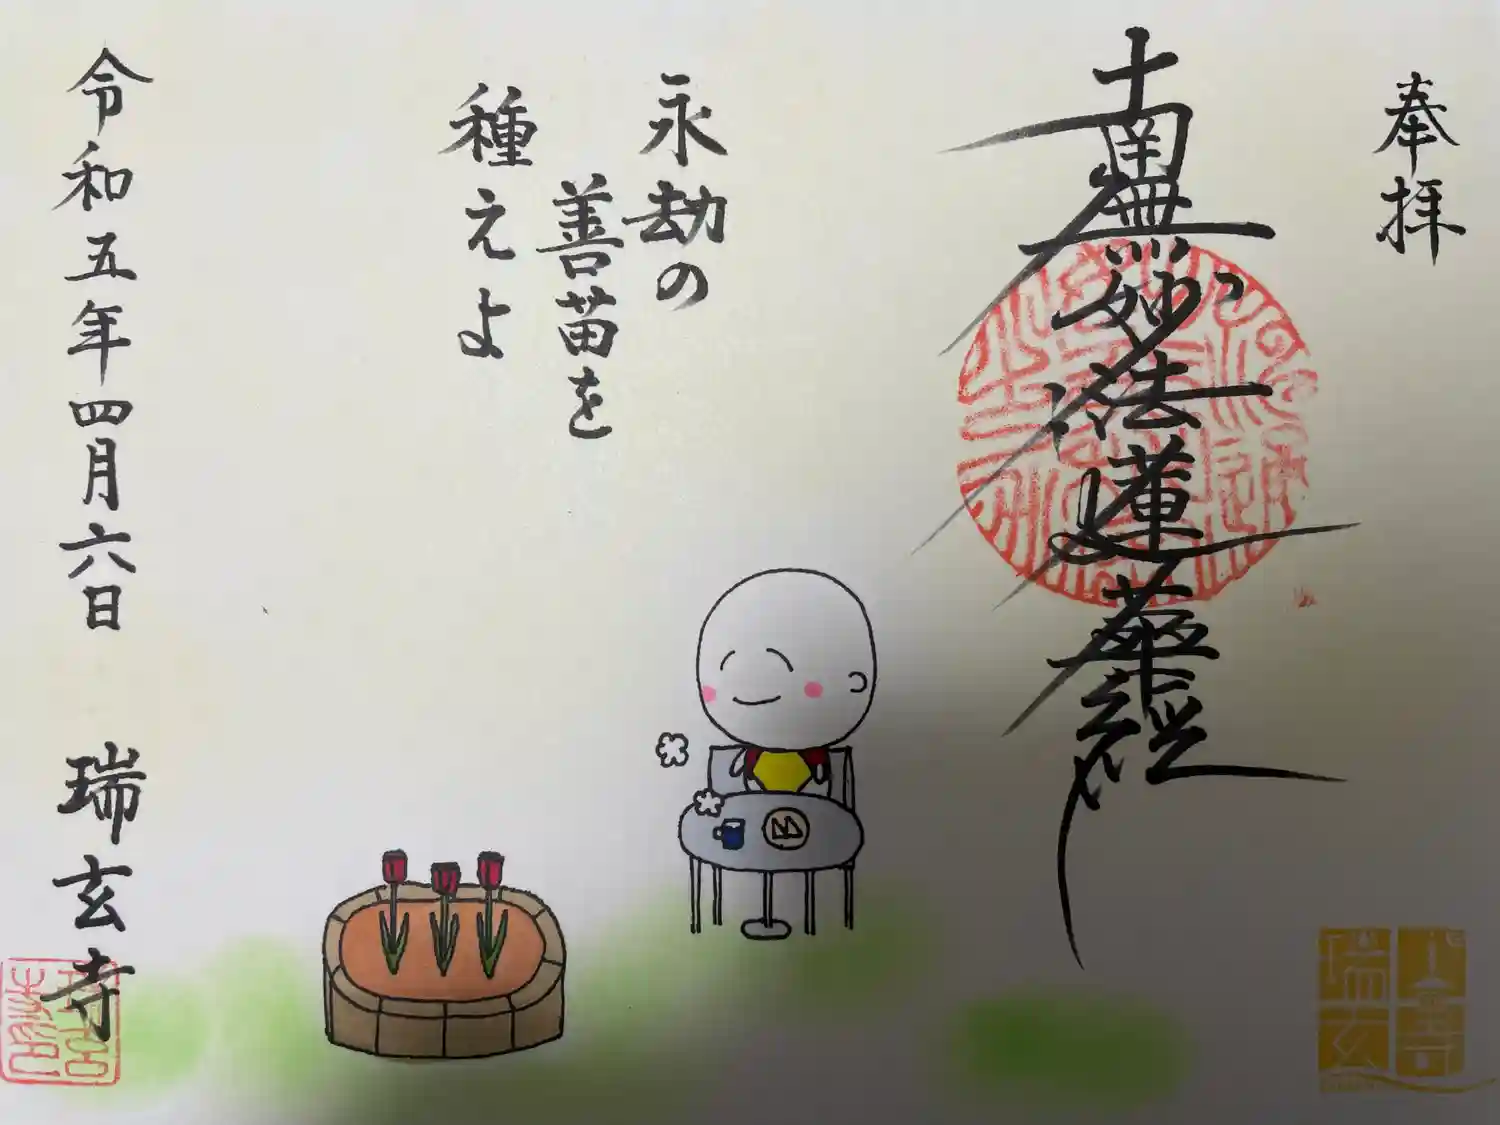 奉拝
南無妙法蓮華経
永劫の
善苗を
種えよ
令和五年四月六日 瑞玄寺
瑞玄